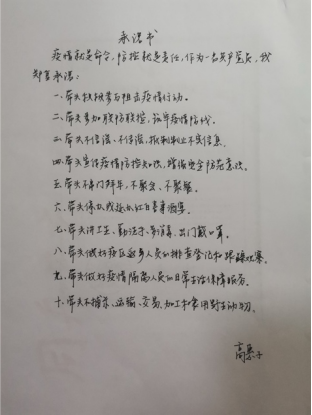 承诺书
疫情就是命令，防控就是责任，作为一名共产党员，我
郑重承诺：
一、带头扶拔参与阻击疫情行动。
二、带头参加联防联控、群防群
三、带头不信谣、不传谣，抵制
四、带头宣传疫情防控知识，增强安全防范意识。
五、带头不串门拜年，不聚会、不聚餐。
六、带头停办或延办红白喜事酒席。
七、带头讲卫生、勤洗手、勤消毒、出门戴口罩。
八、带头做好疫区返乡人员的排查登记和跟踪观察。
九、带头做好疫情隔离人员的日常生活保障服务。
十、带头不捕杀、运输、交易、加工和食用野生动物。